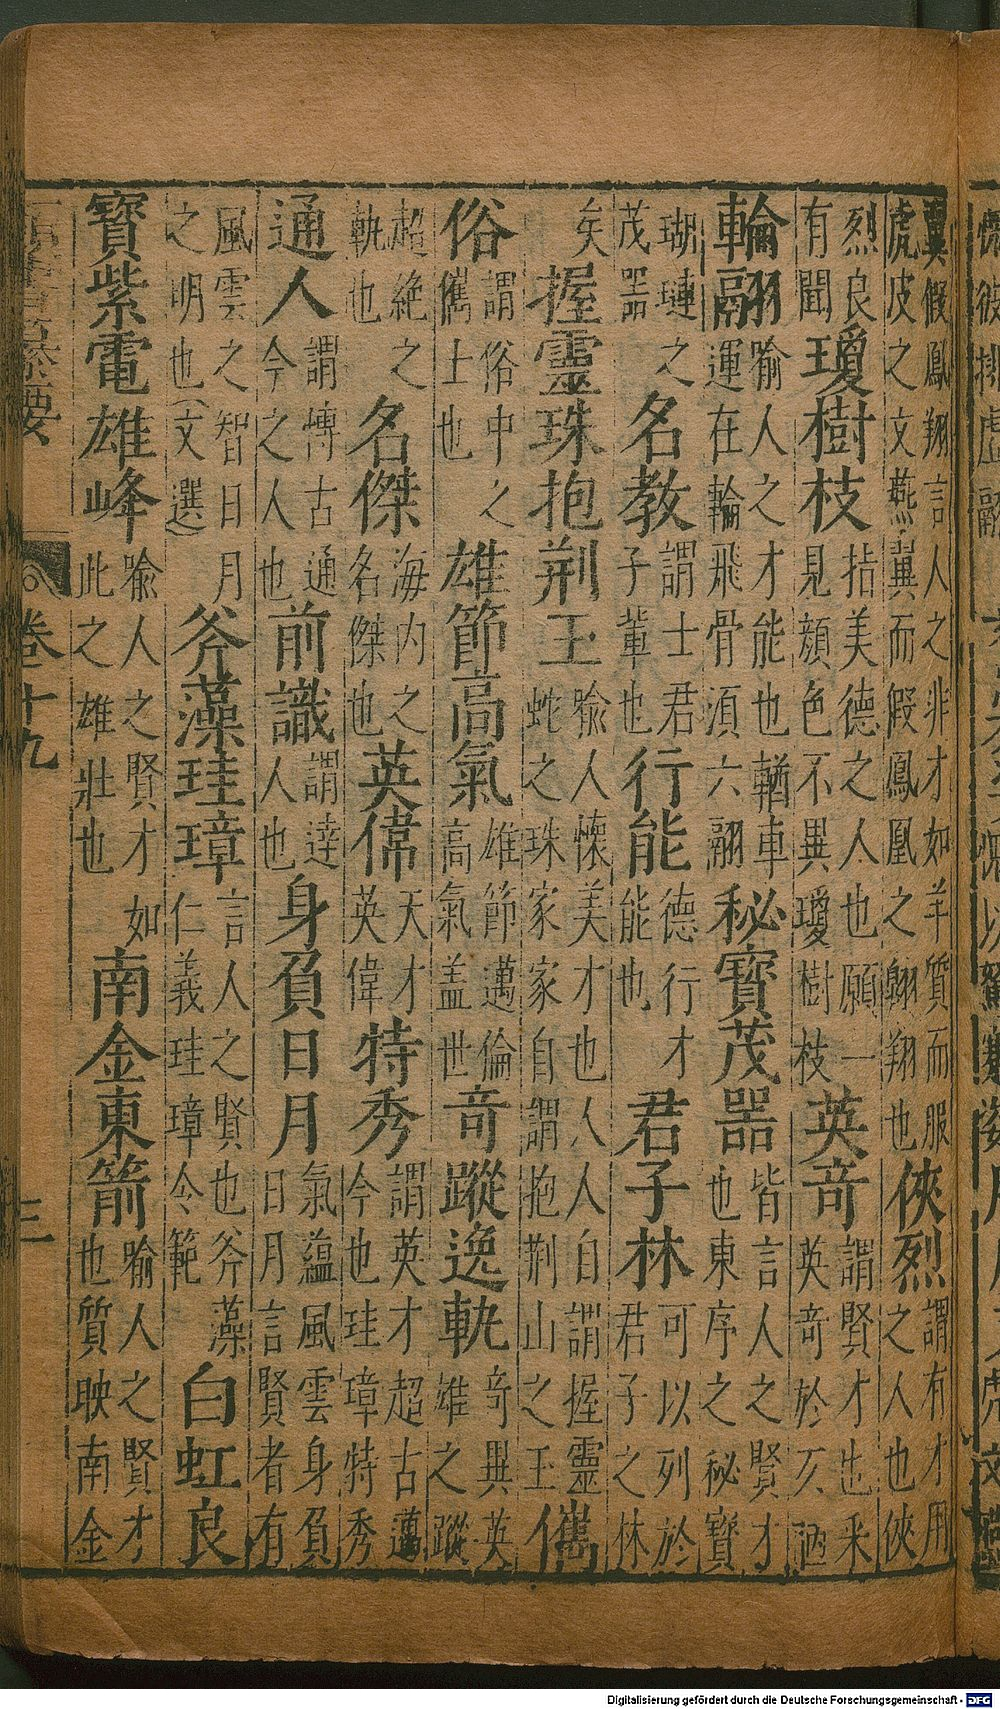 翼假鳳翔言人之非才如羊質而服虎皮之文燕翼而假鳳凰之翱翔也俠烈謂有才用之人也俠
烈良有聞瓊樹枝拈美德之人也願一見顔色不異瓊樹枝英竒謂賢才也采英竒於仄陋
輪翮喻人之才能也輶車運在輪飛骨須六翮秘寶茂器皆言人之賢才也東序之秘寶
瑚璉之茂器名教謂士君子軰也行能德行才能也君子林可以列於君子之林
矣握靈珠抱荆玉喻人懐美才也人人自謂握靈蛇之珠家家自謂抱荆山之玉儁
俗謂俗中之儁士也雄節高氣雄節邁倫高氣盖世竒蹤逸軌竒異英雄之蹤
超絶之軌也名傑海内之名傑也英偉天才英偉特秀謂英才超古邁今也珪璋特秀
通人謂博古通今之人也前識謂逹人也身負日月氣藴風雲身負日月言賢者有
風雲之智日月之明也(文選)斧藻珪璋言人之賢也斧藻仁義珪璋令範白虹良
寳紫電雄峰喻人之賢才如此之雄壯也南金東箭喻人之賢才也質映南金
卷十九
三
Digitalisierung gefördert durch die Deutsche Forschungsgemeinschaft - DFG